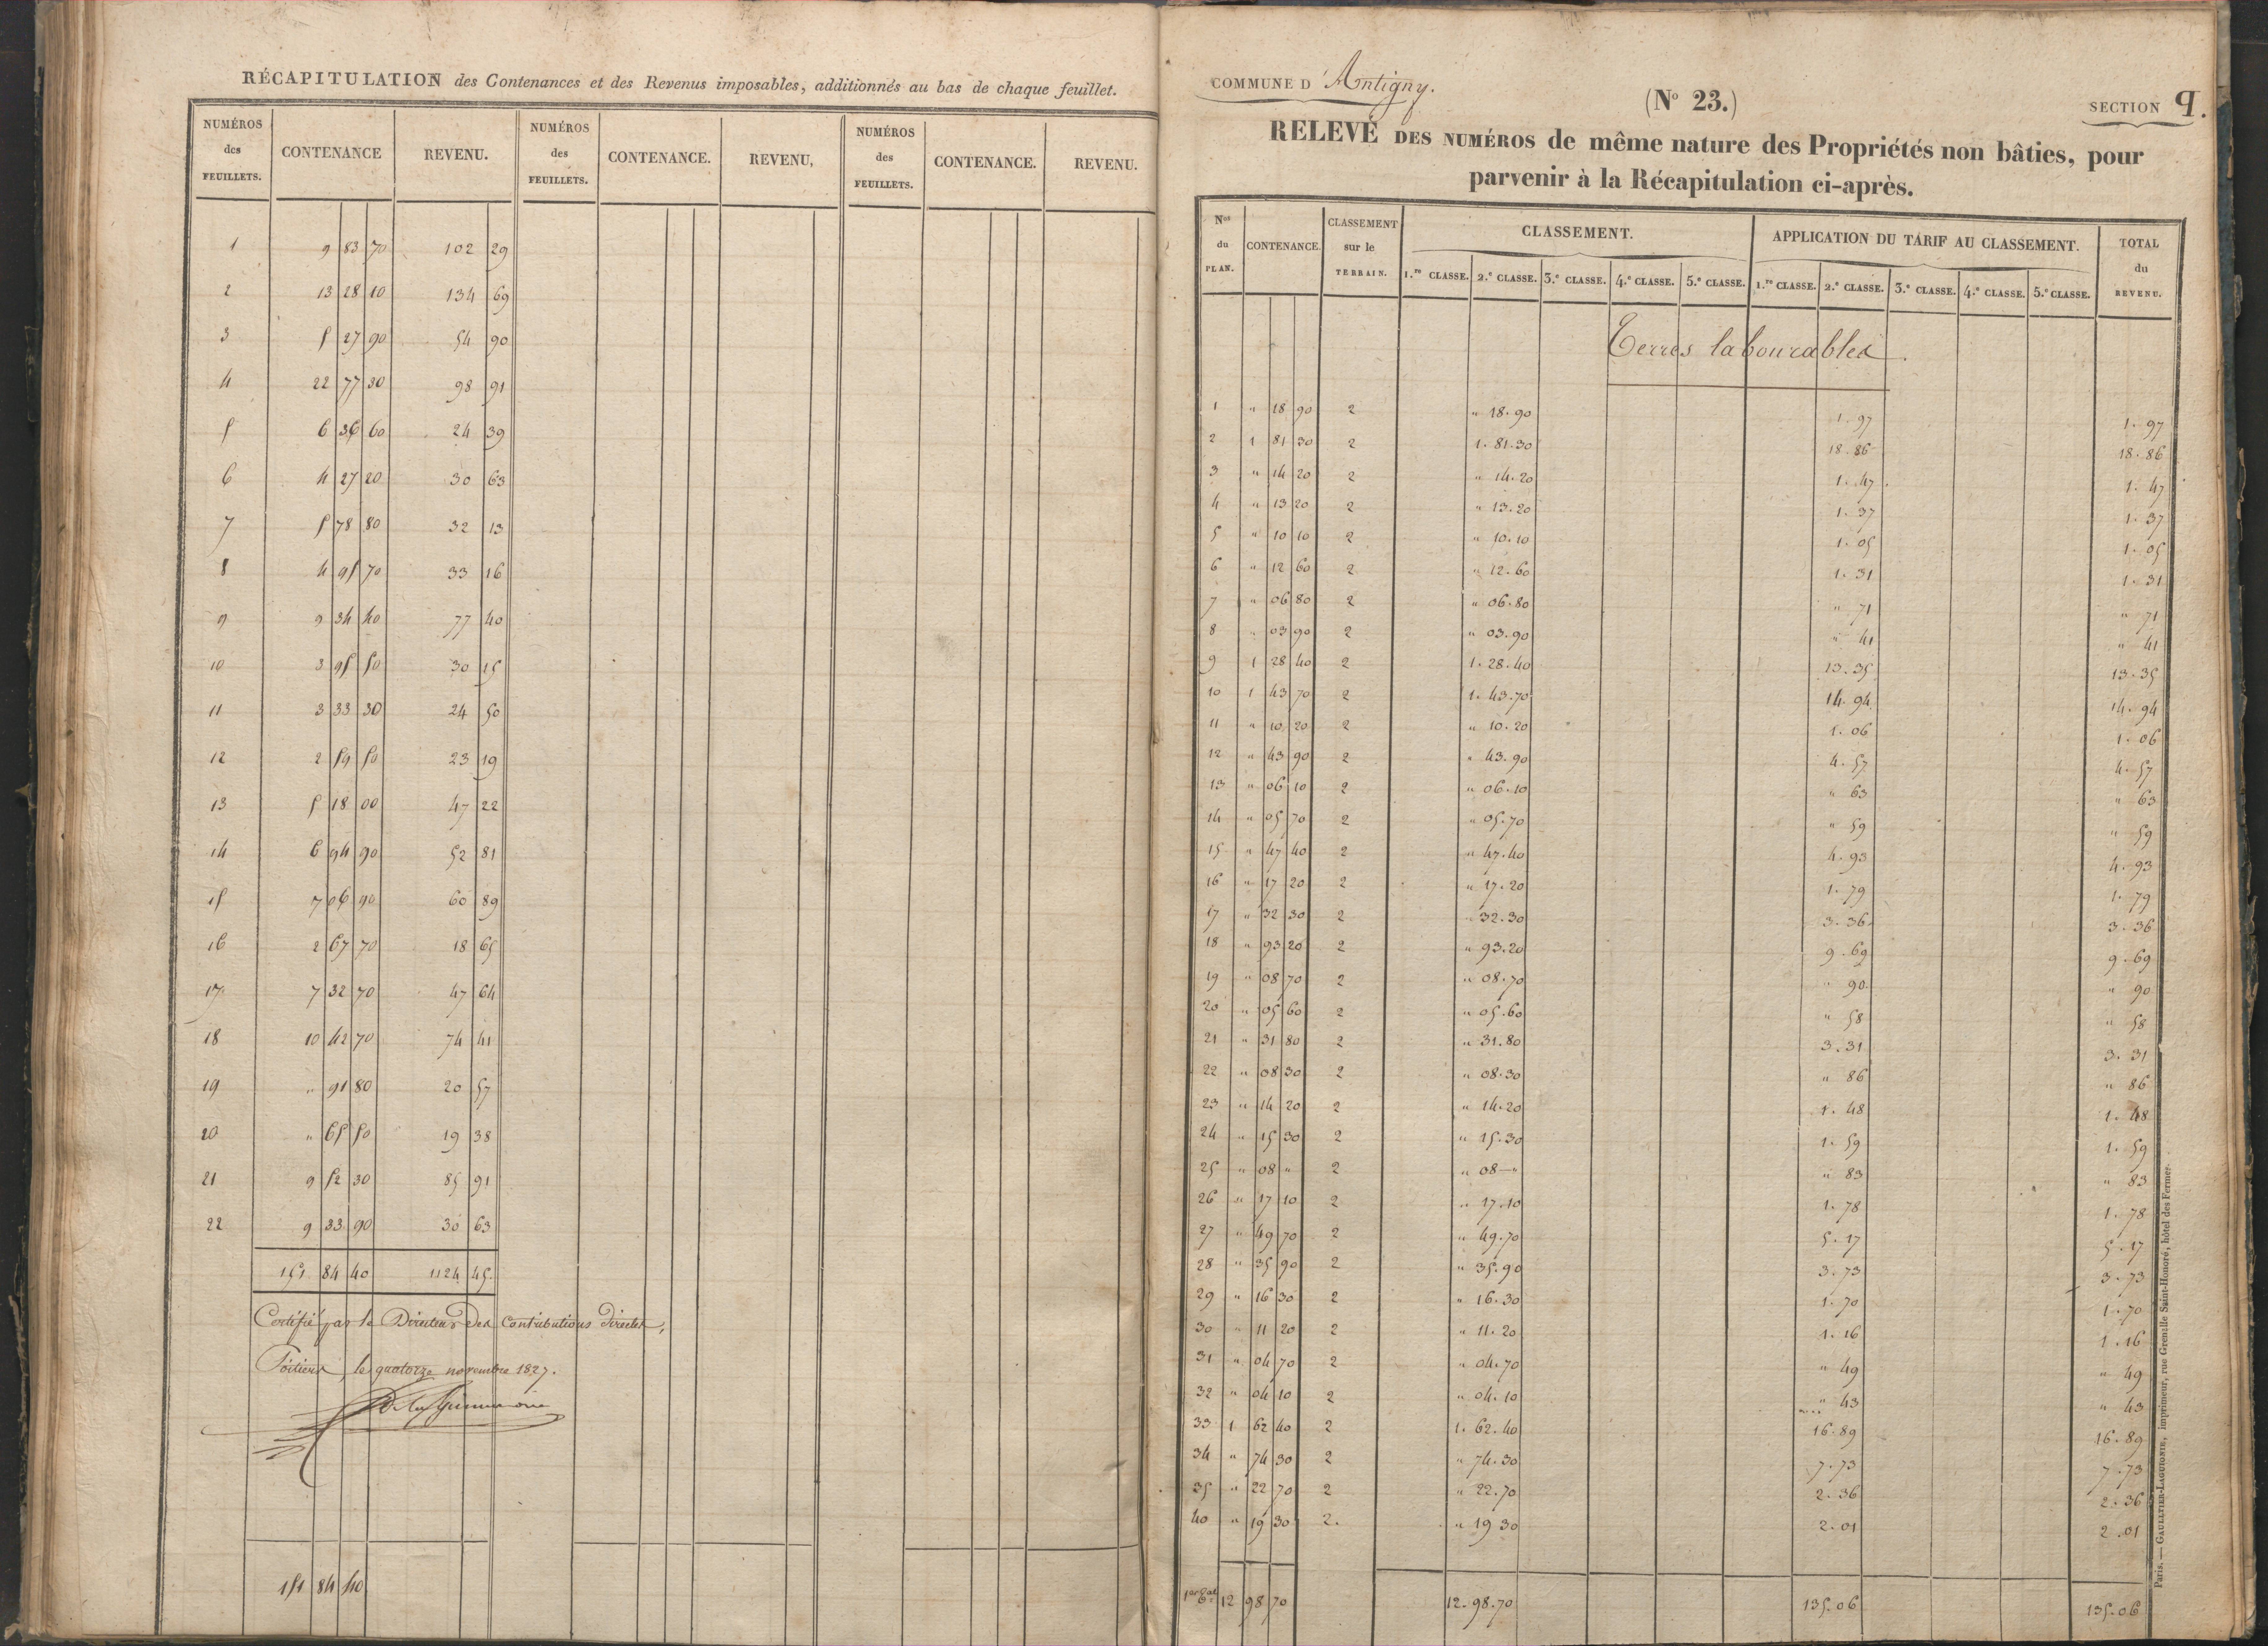 RÉCAPITULATION des Contenances et des Revenus imposables, additionnés au bas de chaque feuillet.
NUMÉROS des FEUILLETS. CONTENANCE REVENU. NUMÉROS des FEUILLETS. CONTENANCE. REVENU, NUMÉROS des FEUILLETS. CONTENANCE. REVENU.
1 9 83 70 102 29
2 13 28 10 134 69
3 5 27 90 54 90
4 22 77 30 98 91
5 6 36 60 24 39
6 4 27 20 30 63
7 5 78 80 32 13
8 4 95 70 33 16
9 9 34 40 77 40
10 3 95 50 30 15
11 3 33 30 24 50
12 2 59 50 23 19
13 5 18 00 47 22
14 6 94 90 52 81
15 7 06 90 60 89
16 2 67 70 18 65
17 7 32 70 47 64
18 10 42 70 74 41
19 " 91 80 20 57
20 " 65 50 19 38
21 9 52 30 85 91
22 9 33 90 30 63
151 84 40 1124 45
Certifié par le Directeur des Contributions directes,
Poitiers, le quatorze novembre 1827.
151 84 40
COMMUNE D'Antigny.
(No 23.)
SECTION q.
RELEVÉ DES NUMÉROS de même nature des Propriétés non bâties, pour
parvenir à la Récapitulation ci-après.
Nos du PLAN. CONTENANCE. CLASSEMENT sur le TERRAIN. CLASSEMENT. APPLICATION DU TARIF AU CLASSEMENT. TOTAL du REVENU.
1.re CLASSE. 2.e CLASSE. 3.e CLASSE. 4.e CLASSE. 5.e CLASSE. 1.re CLASSE. 2.e CLASSE. 3.e CLASSE. 4.e CLASSE. 5.e CLASSE.
Terres labourables.
1 " 18 90 2 " 18.90 1.97 1.97
2 1 81 30 2 1.81.30 18.86 18.86
3 " 14 20 2 " 14.20 1.47 1.47
4 " 13 20 2 " 13.20 1.37 1.37
5 " 10 10 2 " 10.10 1.05 1.05
6 " 12 60 2 " 12.60 1.31 1.31
7 " 06 80 2 " 06.80 " 71 " 71
8 " 03 90 2 " 03.90 " 41 " 41
9 1 28 40 2 1.28.40 13.35 13.35
10 1 43 70 2 1.43.70 14.94 14.94
11 " 10 20 2 " 10.20 1.06 1.06
12 " 43 90 2 " 43.90 4.57 4.57
13 " 06 10 2 " 06.10 " 63 " 63
14 " 05 70 2 " 05.70 " 59 " 59
15 " 47 40 2 " 47.40 4.93 4.93
16 " 17 20 2 " 17.20 1.79 1.79
17 " 32 30 2 " 32.30 3.36 3.36
18 " 93 20 2 " 93.20 9.69 9.69
19 " 08 70 2 " 08.70 " 90 " 90
20 " 05 60 2 " 05.60 " 58 " 58
21 " 31 80 2 " 31.80 3.31 3.31
22 " 08 30 2 " 08.30 " 86 " 86
23 " 14 20 2 " 14.20 1.48 1.48
24 " 15 30 2 " 15.30 1.59 1.59
25 " 08 " 2 " 08—" " 83 " 83
26 " 17 10 2 " 17.10 1.78 1.78
27 " 49 70 2 " 49.70 5.17 5.17
28 " 35 90 2 " 35.90 3.73 3.73
29 " 16 30 2 " 16.30 1.70 1.70
30 " 11 20 2 " 11.20 1.16 1.16
31 " 04 70 2 " 04.70 " 49 " 49
32 " 04 10 2 " 04.10 " 43 " 43
33 1 62 40 2 1.62.40 16.89 16.89
34 " 74 30 2 " 74.30 7.73 7.73
35 " 22 70 2 " 22.70 2.36 2.36
40 " 19 30 2. " 19 30 2.01 2.01
12 98 70 12.98.70 135.06 135.06
Paris. — GAULTIER-LAGUIONIE, imprimeur, rue Grenelle Saint-Honoré, hôtel des Fermes.